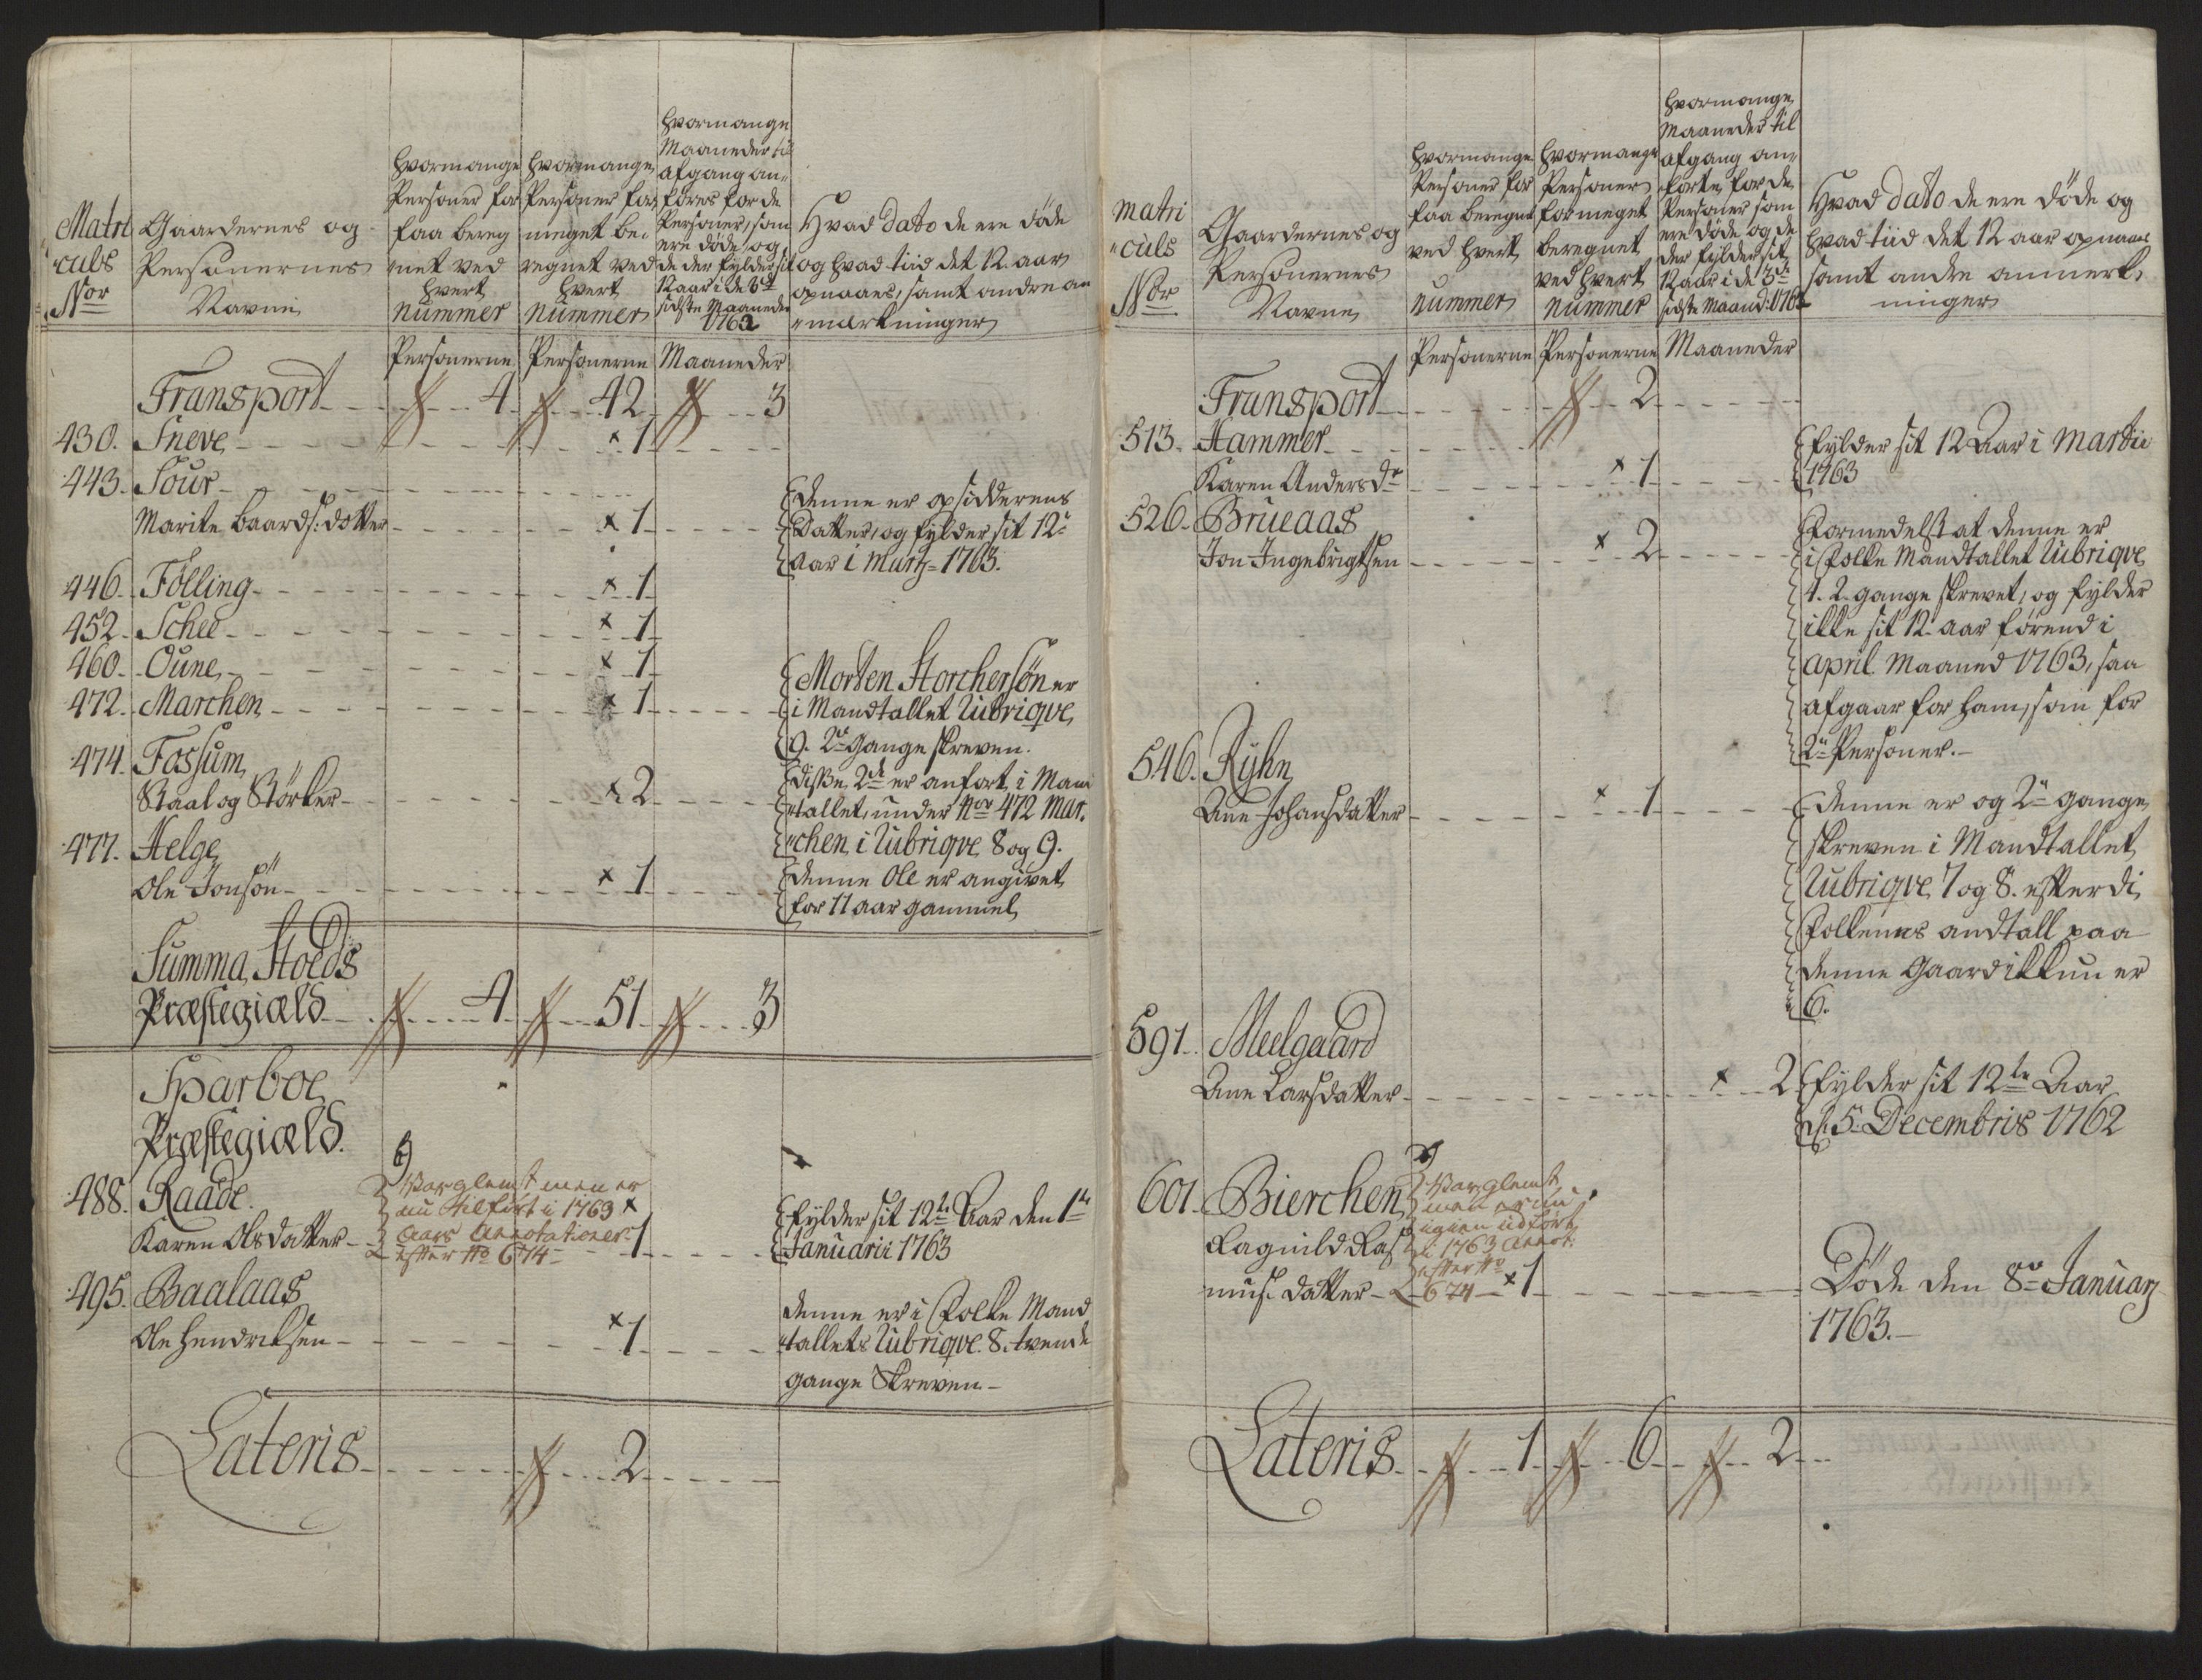 Matri
culs
Nor
Gaardernes og
Personernes
Navne
hvormange
Personer for
faa bereg
net ved
hvert
nummer
hvormange
Personer for
meget be-
regnet ved
hvert
nummer
hvormange
Maaneder til
afgang an-
føres for de
Personer, som
ere døde, og
de der fylder sit
12 aar i de 3de
sidste Maaneder
1762
Hvad dato de ere døde
og hvad tiid det 12 aar
opnaaes, samt andre an
mærkninger
Personerne Personerne Maaneder
Transport 4 42 3
430. Sneve 1
443. Sour
Marite Baards: dotter 1
denne er opsidderens
Datter, og fylder sit 12te
aar i Martz 1763.
446. Følling 1
452. Schee 1
460. Oune 1
472. Marchen 1
Morten Storchersøn er
i Mandtallet Rubriqve
9. 2de gange skreven.
474. Fossum
Staal og Størker 2
disse 2de er anført i Man
tallet, under No 472 Mar-
chen i Rubriqve 8 og 9.
477. Helge
Ole Jonsøn 1
denne Ole er angivet
for 11 aar gammel
Summa Stoeds
Præstegiæld 4 51 3
Sparboe
Præstegiæld.
488. Raade.
Karen Olsdatter 1
Var glemt men er
nu tilført i 1763
Aars Annotationer
efter No 674
fylder sit 12te Aar den 1te
Januarii 1763
495. Baalaas
Ole Hendrichsen 1
denne er i Folke Mand
tallets Rubriqve 8. tvende
gange Skreven
Lateris 2
matri
culs
Nor
Gaardernes og
Personernes
Navne
hvormange
Personer for
faa beregnet
ved hvert
nummer
hvormange
Personer
for meget
beregnet
ved hvert
nummer
hvormange
Maaneder til
afgang an-
førte for de
Personer som
ere døde og de
der fylder sit
12 aar i de 3de
sidste Maaned: 1762
Hvad dato de ere døde og
hvad tiid det 12 aar opnaaes
samt andre anmerk-
ninger
Personerne Personerne Maaneder
Transport 2
513. Hammer
Karen Andersdr 1
fylder sit 12 Aar i Martii
1763
526. Brueaas
Jon Ingebrigtsen 2
Formedelst at denne er
i Folke Mandtallet Rubriqve
4. 2. gange skrevet, og fylder
ikke sit 12. aar førend i
april Maaned 1763, saa
afgaar for ham, som for
2de Personer.
546. Ryhn
Ane Johansdatter 1
denne er og 2de gange
skreven i Mandtallet
Rubriqve 7 og 8. efterdi
Folkenes andtall paa
denne Gaard ikkun er
6.
591. Meelgaard
Ane Larsdatter 2
fylder sit 12te Aar
d. 5. Decembris 1762
601. Bierchen
Ragnild Ras
mus: datter 1
Var glemt
men er nu
igien udført
i 1763 Annot:
efter No
674
Døde den 8de Januarj
1763.
Lateris 1 6 2